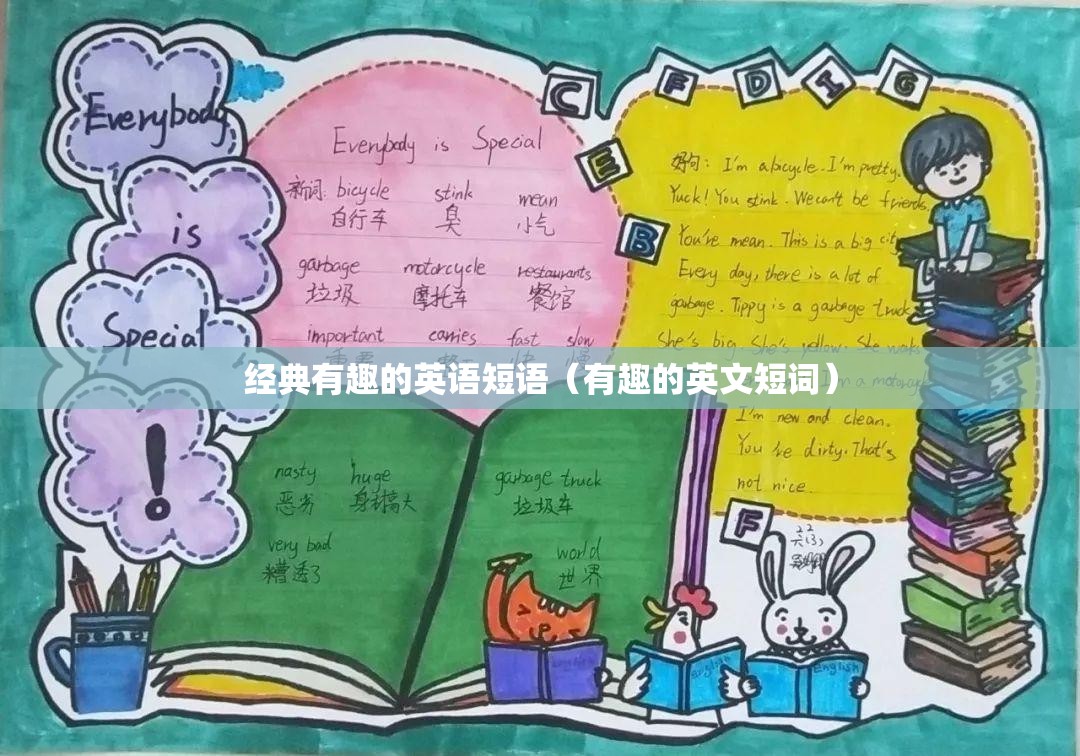 Everybody
is
Special
!
C
E
B
F
D
I
G
F
Everybody is Special
新词: bicycle stink mean
自行车 臭 小气
garbage motorcycle restaurants
垃圾 摩托车 餐馆
important carries fast slow
经典有趣的英语短语（有趣的英文短词）
好句: I'm a bicycle. I'm pretty.
Yuck! You stink. We can't be friends.
You're mean. This is a big city
Every day, there is a lot of
garbage. Tippy is a garbage truck
She's big. She's yellow. She works
I'm new and clean.
You're dirty. That's
not nice.
nasty huge
恶劣
very bad
糟透了
garbage truck
垃圾车
world
世界
English
English
English